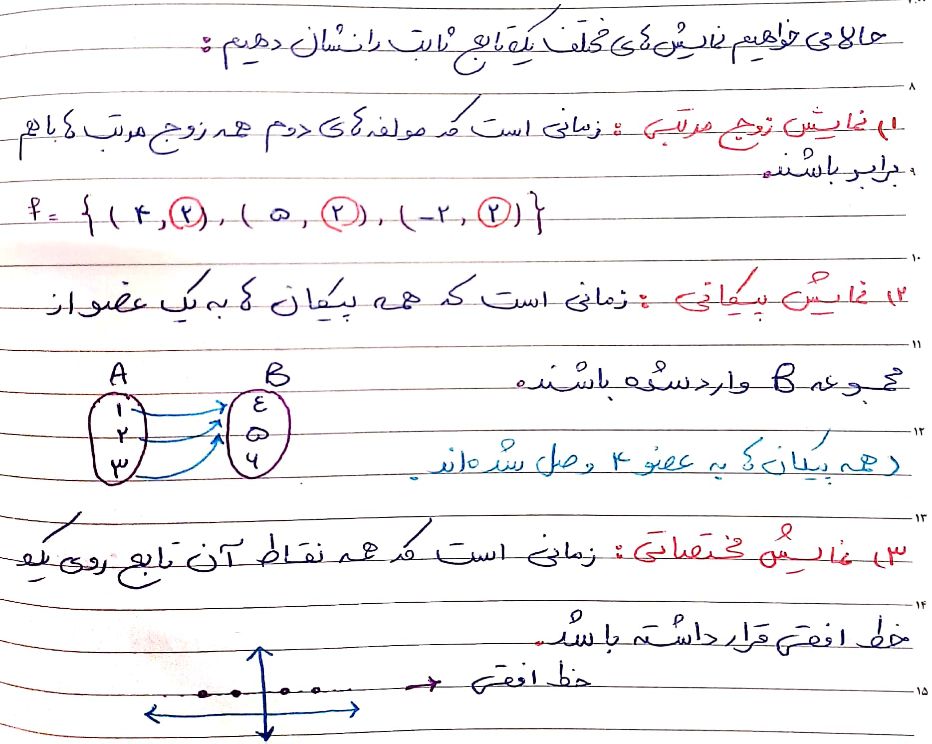 حالا می خواهیم نمایش های مختلف یک تابع ثابت را نشان دهیم :
۸
۱) نمایش زوج مرتبی : زمانی است که مولفه های دوم همه زوج مرتب ها با هم
۹
برابر باشند.
f = { (۴,۲), (۵,۲), (-۲,۲) }
۱۰
۲) نمایش پیکانی : زمانی است که همه پیکان ها به یک عضو از
۱۱
مجموعه B وارد شده باشند.
A B
۱ ٤
۱۲
۲ ۵
۳ ۶
همه پیکان ها به عضو ۴ وصل شده اند
۱۳
۳) نمایش مختصاتی : زمانی است که همه نقاط آن تابع روی یک
۱۴
خط افقی قرار داشته باشد.
خط افقی
۱۵